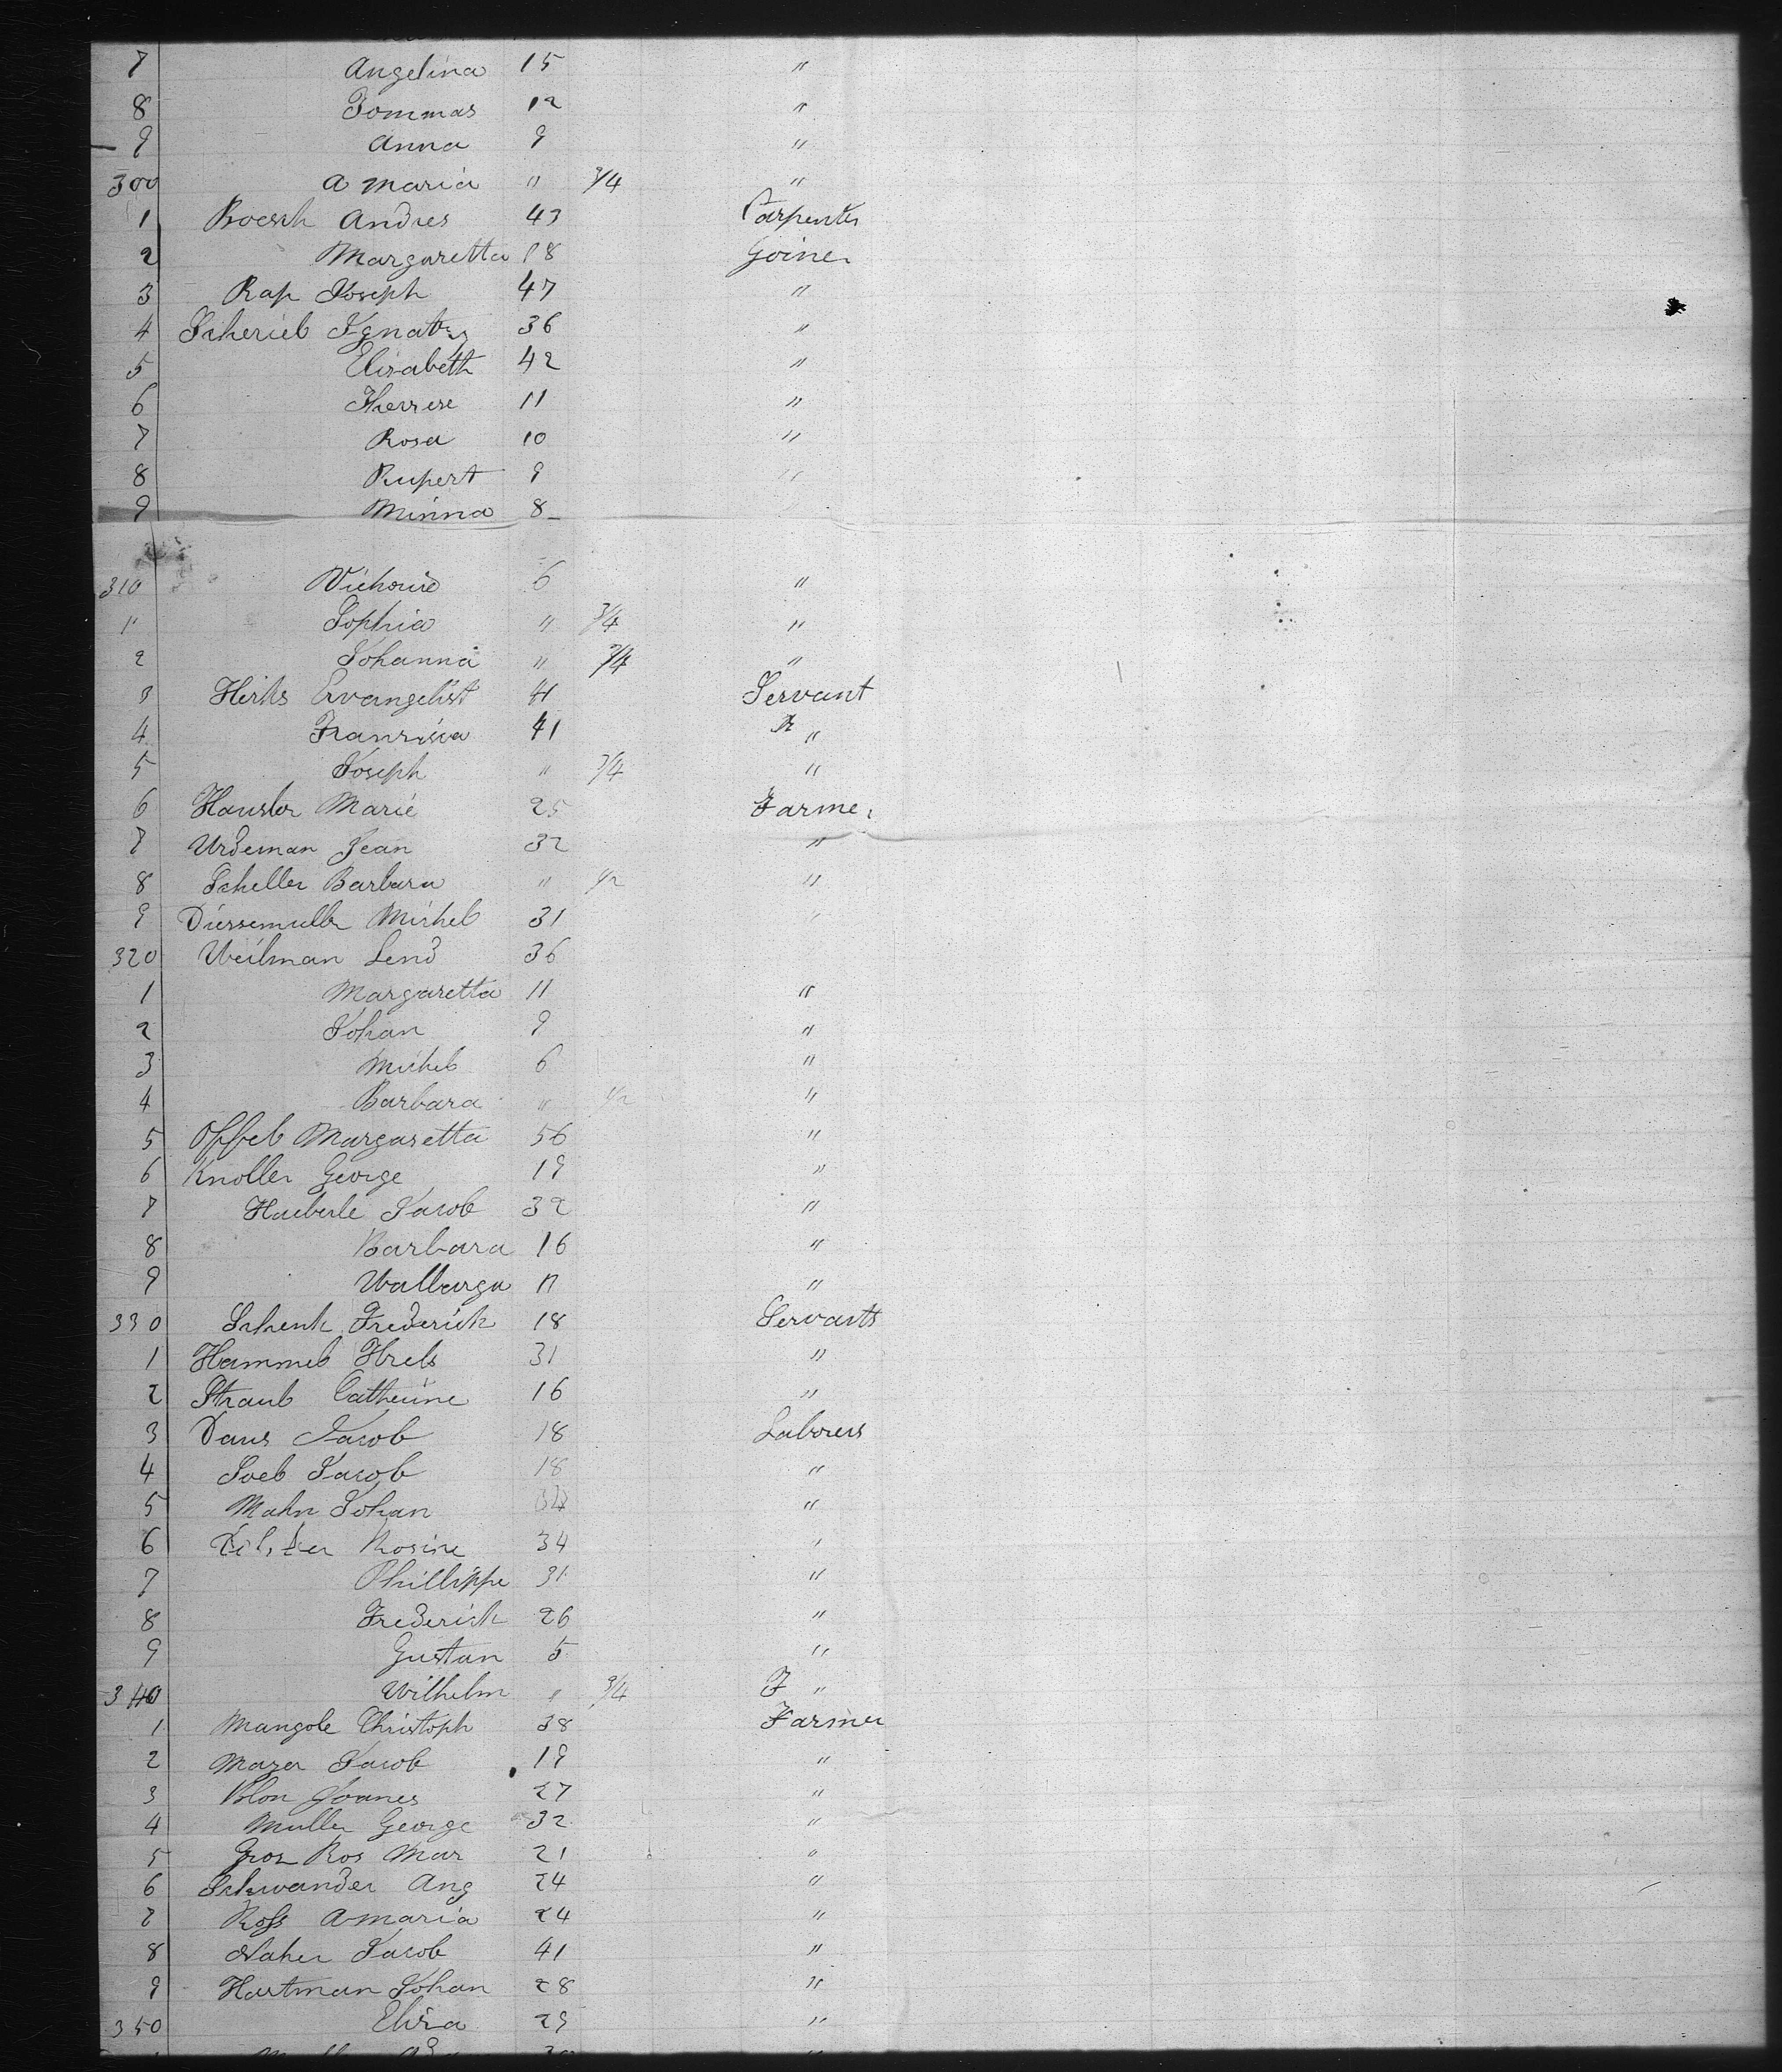 7 Angelina 15 "
8 Tommas 12 "
9 Anna 9 "
300 A Maria " 3/4 "
1 Boesch Andres 43 Carpenter
2 Margaretta 18 Goiner
3 Rap Joseph 47 "
4 Scherieb Ignatz 36 "
5 Elisabeth 42 "
6 Therrese 11 "
7 Rosa 10 "
8 Rupert 9 "
9 Minna 8 "
310 6 "
1 Sophia " 3/4 "
2 Johanna " 3/4 "
3 Evangelist 41 Servant
4 Franzisca 41 "
5 Joseph " 3/4 "
6 Hausler Marie 25 Farmer
7 Urdeman Jean 32 "
8 Scheller Barbara " 1/2 "
9 Diessemuller Michel 31 "
320 Weilman Lend 36
1 Margaretta 11 "
2 Johan 9 "
3 Michel 6 "
4 Barbara " 1/2 "
5 Offel Margaretta 56 "
6 Knoller George 19 "
7 Haeberle Jacob 32 "
8 Barbara 16 "
9 Walburga 11 "
330 Schenk Frederick 18 Servants
1 Hammel 31 "
2 Straub Catherine 16 "
3 Daus Jacob 18 Laborers
4 Soel Jacob 18 "
5 Mahn Johan "
6 Rosine 34 "
7 Phillippe 31 "
8 Frederick 26 "
9 Gustan 5 "
340 Wilhelm " 3/4 F "
1 Mangole Christoph 38 Farmer
2 Mayer Jacob 19 "
3 Blon Joanes 27 "
4 Muller George 32 "
5 Gros Ros Mar 21 "
6 Schwander Aug 24 "
7 Ross A Maria 24 "
8 Naher Jacob 41 "
9 Hartman Johan 28 "
350 Elisa 29 "